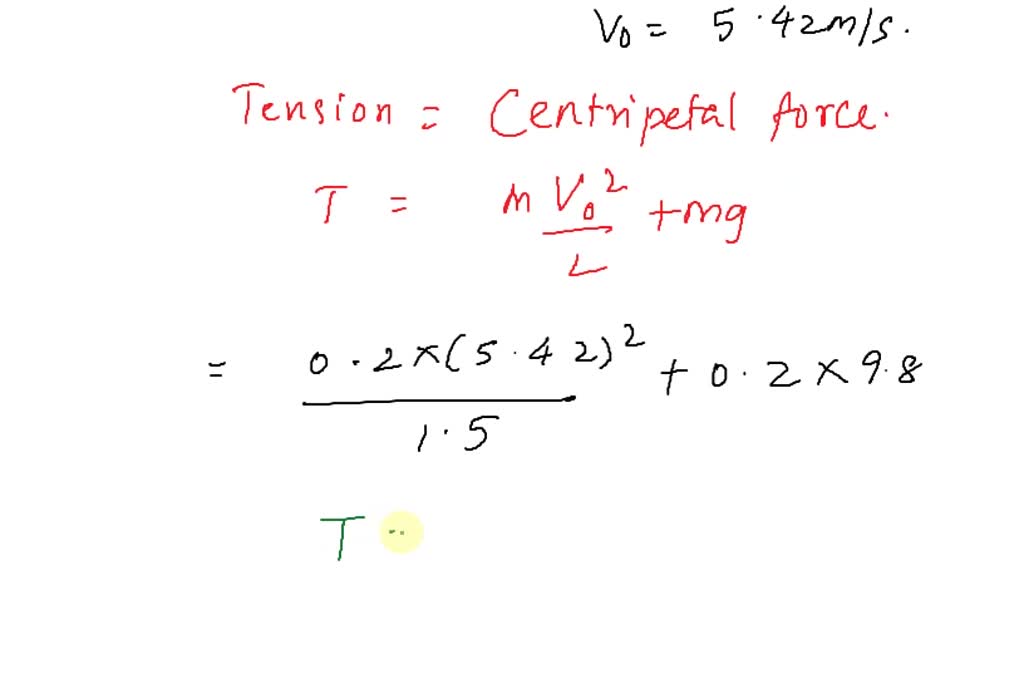 V₀ = 5.42m/s.
Tension = Centripetal force.
T = m V₀² / L + mg
= 0.2×(5.42)² / 1.5 + 0.2×9.8
T